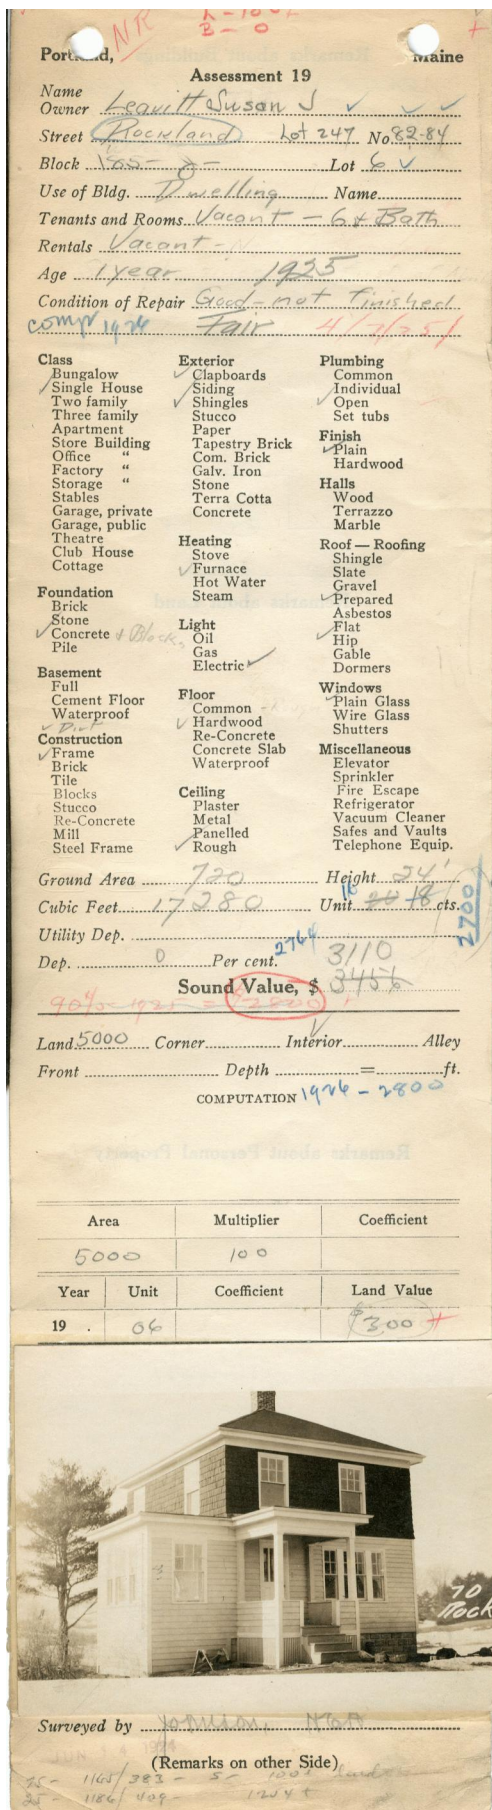 NR
B - 0
Portland, Maine
Assessment 19
Name
Owner Leavitt Susan J
Street Rockland Lot 247 No 82-84
Block 185- Lot 6
Use of Bldg. Dwelling Name
Tenants and Rooms Vacant - 6 & Bath
Rentals Vacant -
Age 1 year 1925
Condition of Repair Good - not finished
compr 1926 Fair 4/7/25
Class
Bungalow
Single House
Two family
Three family
Apartment
Store Building
Office "
Factory "
Storage "
Stables
Garage, private
Garage, public
Theatre
Club House
Cottage
Foundation
Brick
Stone
Concrete & Block
Pile
Basement
Full
Cement Floor
Waterproof
Dirt
Construction
Frame
Brick
Tile
Blocks
Stucco
Re-Concrete
Mill
Steel Frame
Exterior
Clapboards
Siding
Shingles
Stucco
Paper
Tapestry Brick
Com. Brick
Galv. Iron
Stone
Terra Cotta
Concrete
Heating
Stove
Furnace
Hot Water
Steam
Light
Oil
Gas
Electric
Floor
Common
Hardwood
Re-Concrete
Concrete Slab
Waterproof
Ceiling
Plaster
Metal
Panelled
Rough
Plumbing
Common
Individual
Open
Set tubs
Finish
Plain
Hardwood
Halls
Wood
Terrazzo
Marble
Roof — Roofing
Shingle
Slate
Gravel
Prepared
Asbestos
Flat
Hip
Gable
Dormers
Windows
Plain Glass
Wire Glass
Shutters
Miscellaneous
Elevator
Sprinkler
Fire Escape
Refrigerator
Vacuum Cleaner
Safes and Vaults
Telephone Equip.
Ground Area 720 Height 24'
Cubic Feet 17280 Unit 16 20 18 cts.
2700
Utility Dep.
Dep. 0 Per cent. 2764 3110
Sound Value, $ 3456
90% 1925 = $2800
Land 5000 Corner Interior Alley
Front Depth = ft.
COMPUTATION 1926 - 2800
Area Multiplier Coefficient
5000 100
Year Unit Coefficient Land Value
19 . 06 $300 +
70
Rock
Surveyed by Johnson,
(Remarks on other Side)
25 - 1165/383 - 5 -
25 - 1186/409 - 1254 +